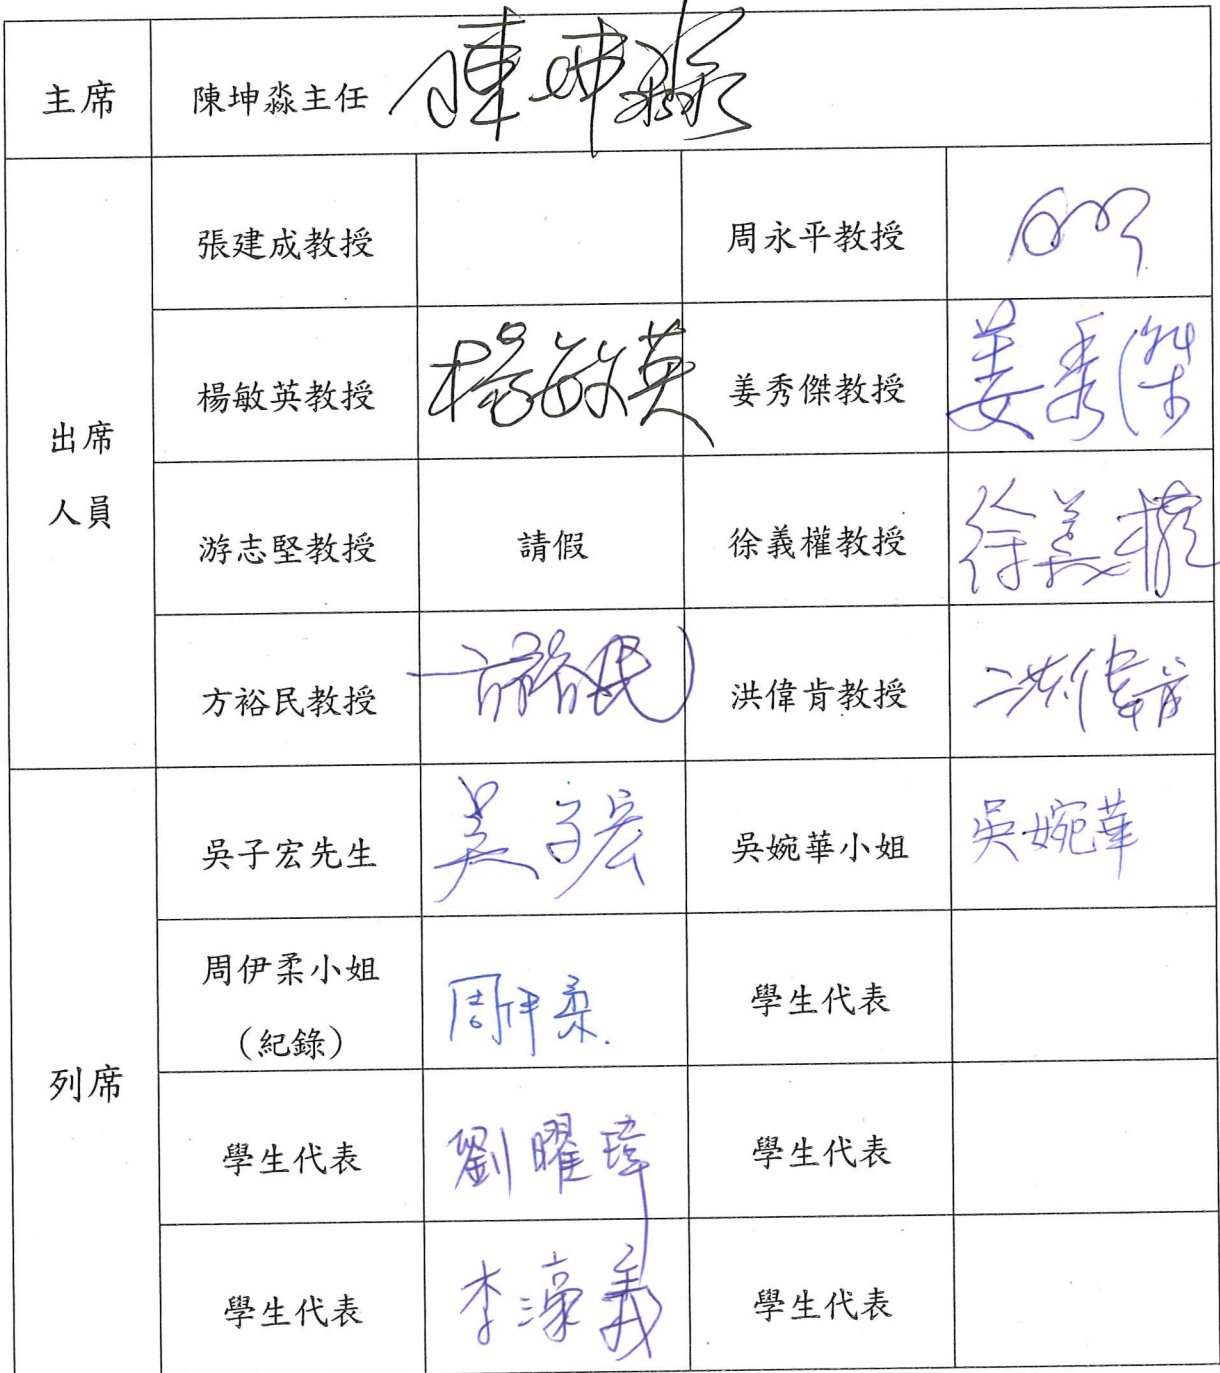 主席
陳坤淼主任 陳坤淼
出席
人員
張建成教授
周永平教授
楊敏英教授 楊敏英
姜秀傑教授 姜秀傑
游志堅教授 請假
徐義權教授 徐義權
方裕民教授 方裕民
洪偉肯教授 洪偉肯
列席
吳子宏先生 吳子宏
吳婉華小姐 吳婉華
周伊柔小姐
(紀錄)
周伊柔
學生代表
學生代表 劉曜瑋
學生代表
學生代表 李濠義
學生代表